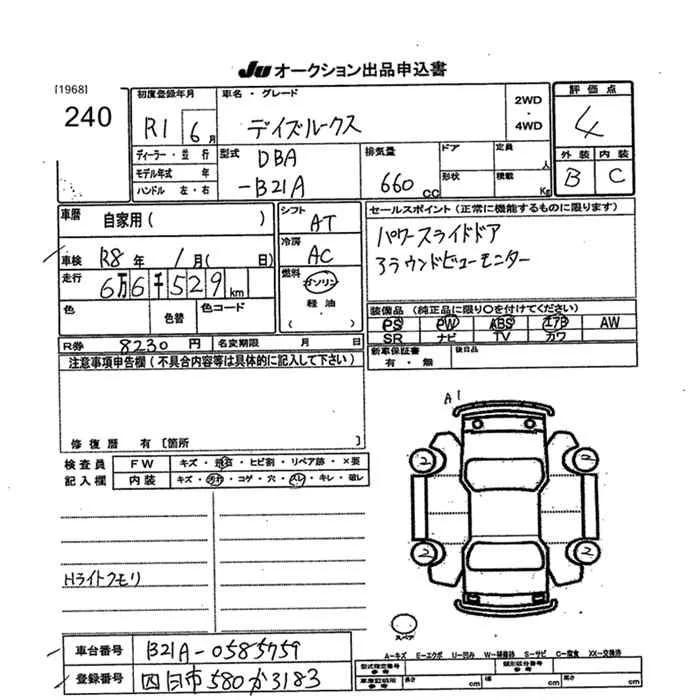 Ju オークション出品申込書
[1968]
240
初度登録年月
R1 6月
車名・グレード
デイズルークス
2WD
・
4WD
評価点
4
外装 内装
B C
ディーラー・並行
モデル年式 年
ハンドル 左・右
型式 DBA
-B21A
排気量
660 CC
ドア
形状
定員 人
積載 Kg
車歴 自家用( )
車検 R8年 1月( 日)
走行 6万6千529km
色 色替 色コード
シフト AT
冷房 AC
燃料 ガソリン
軽油
( )
セールスポイント(正常に機能するものに限ります)
パワースライドドア
アラウンドビューモニター
装備品(純正品に限り○を付けてください)
PS PW ABS エアB AW
SR ナビ TV カワ
R券 8230円 名変期限 月 日
新車保証書 後日品
有・無
注意事項申告欄(不具合内容等は具体的に記入して下さい)
修復歴 有[箇所 ]
検査員 FW キズ・飛石・ヒビ割・リペア跡・×要
記入欄 内装 キズ・汚れ・コゲ・穴・スレ・キレ・破レ
A1
2 2
2 2
Hライトクモリ
スペア
A-キズ E-エクボ U-凹み W-補修跡 S-サビ C-腐食 XX-交換済
車台番号 B21A-0585759
登録番号 四日市580か3183
型式指定番号 参考 類別区分番号 参考
車庫証明用 参考 長さ cm 幅 cm 高さ cm